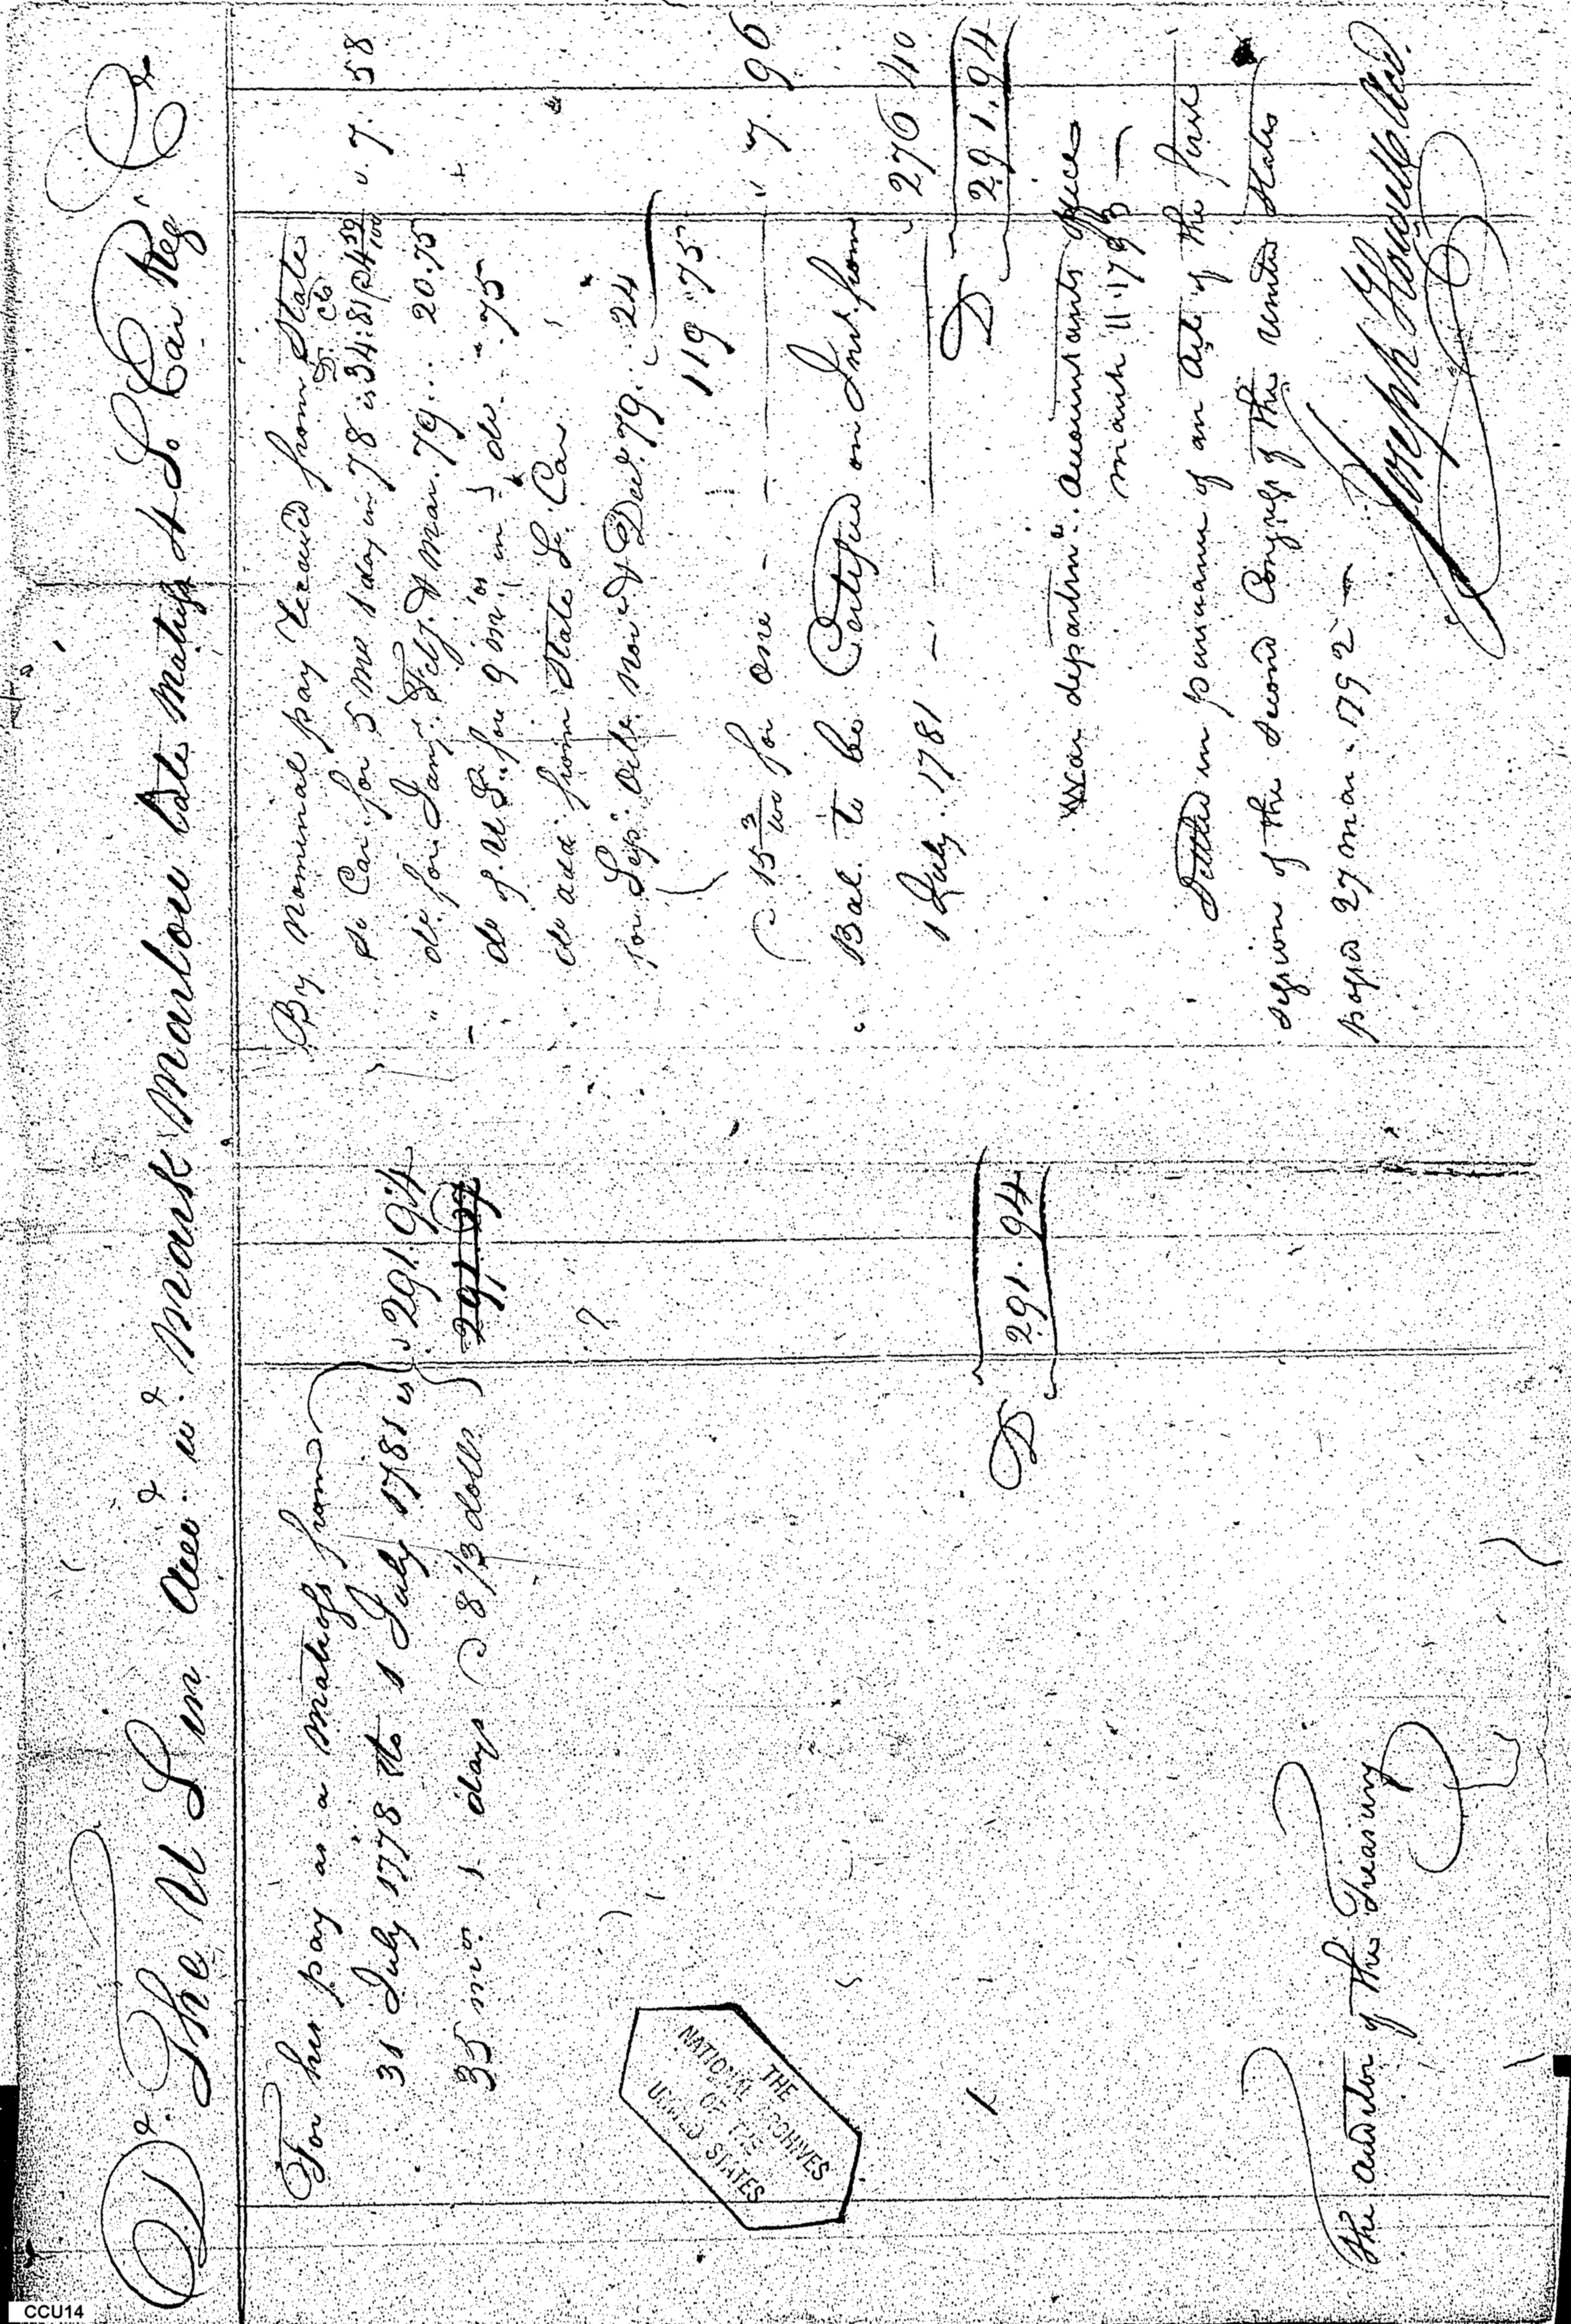 Dr. The U S in Acct. wt. Mark Marlow late Matross 4 So Car Regt Cr
For his pay as a Matross from
31 July 1778 to 1 July 1781 is 291.94
35 mos 1 days @ 8 1/3 dolls
D 291.94
The Auditor of the Treasury
By Nominal pay received from State
D. Cts
So Car. for 5 mos 1 day in 78 is 34:81 @ 4 59/100 " 7. 58
" do for Jany. Feby & Mar. 79... 20.75
" do of U S. for 9 mos in do - " 75
do add. from State So. Car
for Sepr. Octr. Nov & Decr. 79.. 24
119 "75
@ 15 3/100 for one - - - " 7. 96
" Bal. to be Certified on Int. from
1 July. 1781 — 276 40
D 291.94
War departmt. Accountants Office
March 11. 1793 —
Settled in pursuance of an Act of the first
session of the Second Congress of the United States
passed 27 Mar. 1792 —
Joseph Howell Acct.
THE
NATIONAL ARCHIVES
OF THE
UNITED STATES
CCU14